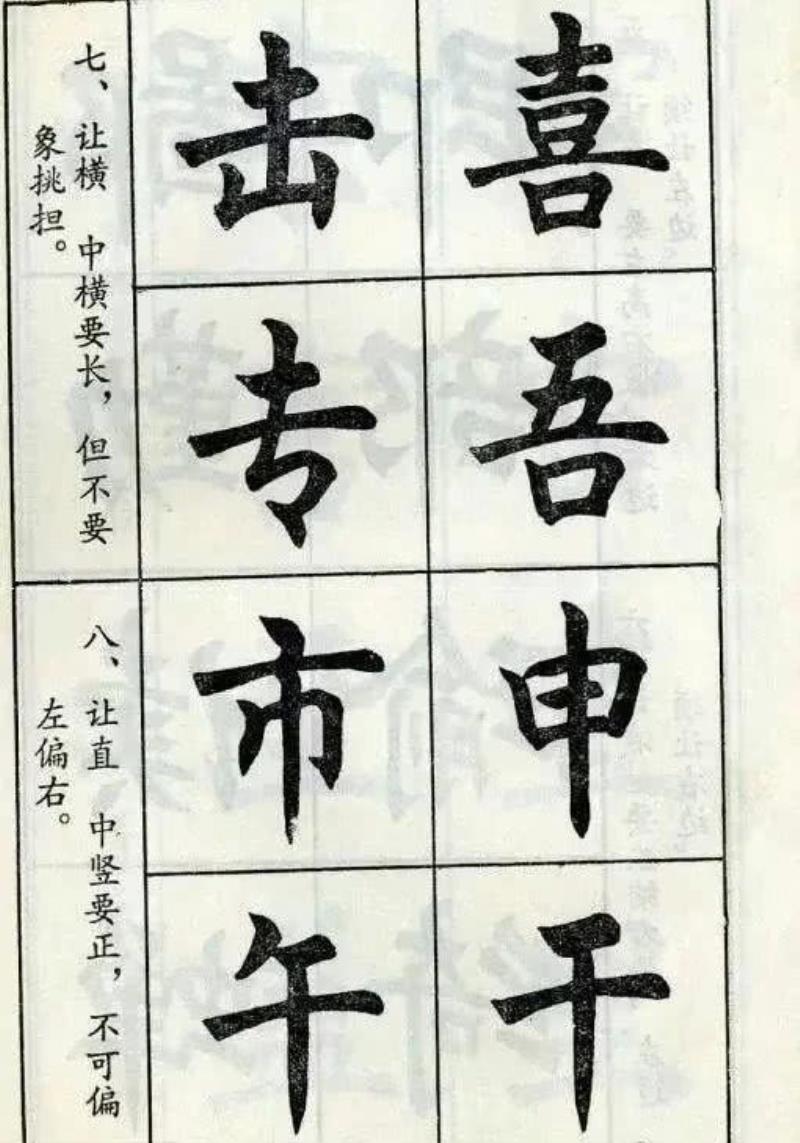 七、让横 中横要长，但不要
象挑担。
喜
吾
击
专
八、让直 中竖要正，不可偏
左偏右。
申
干
市
午